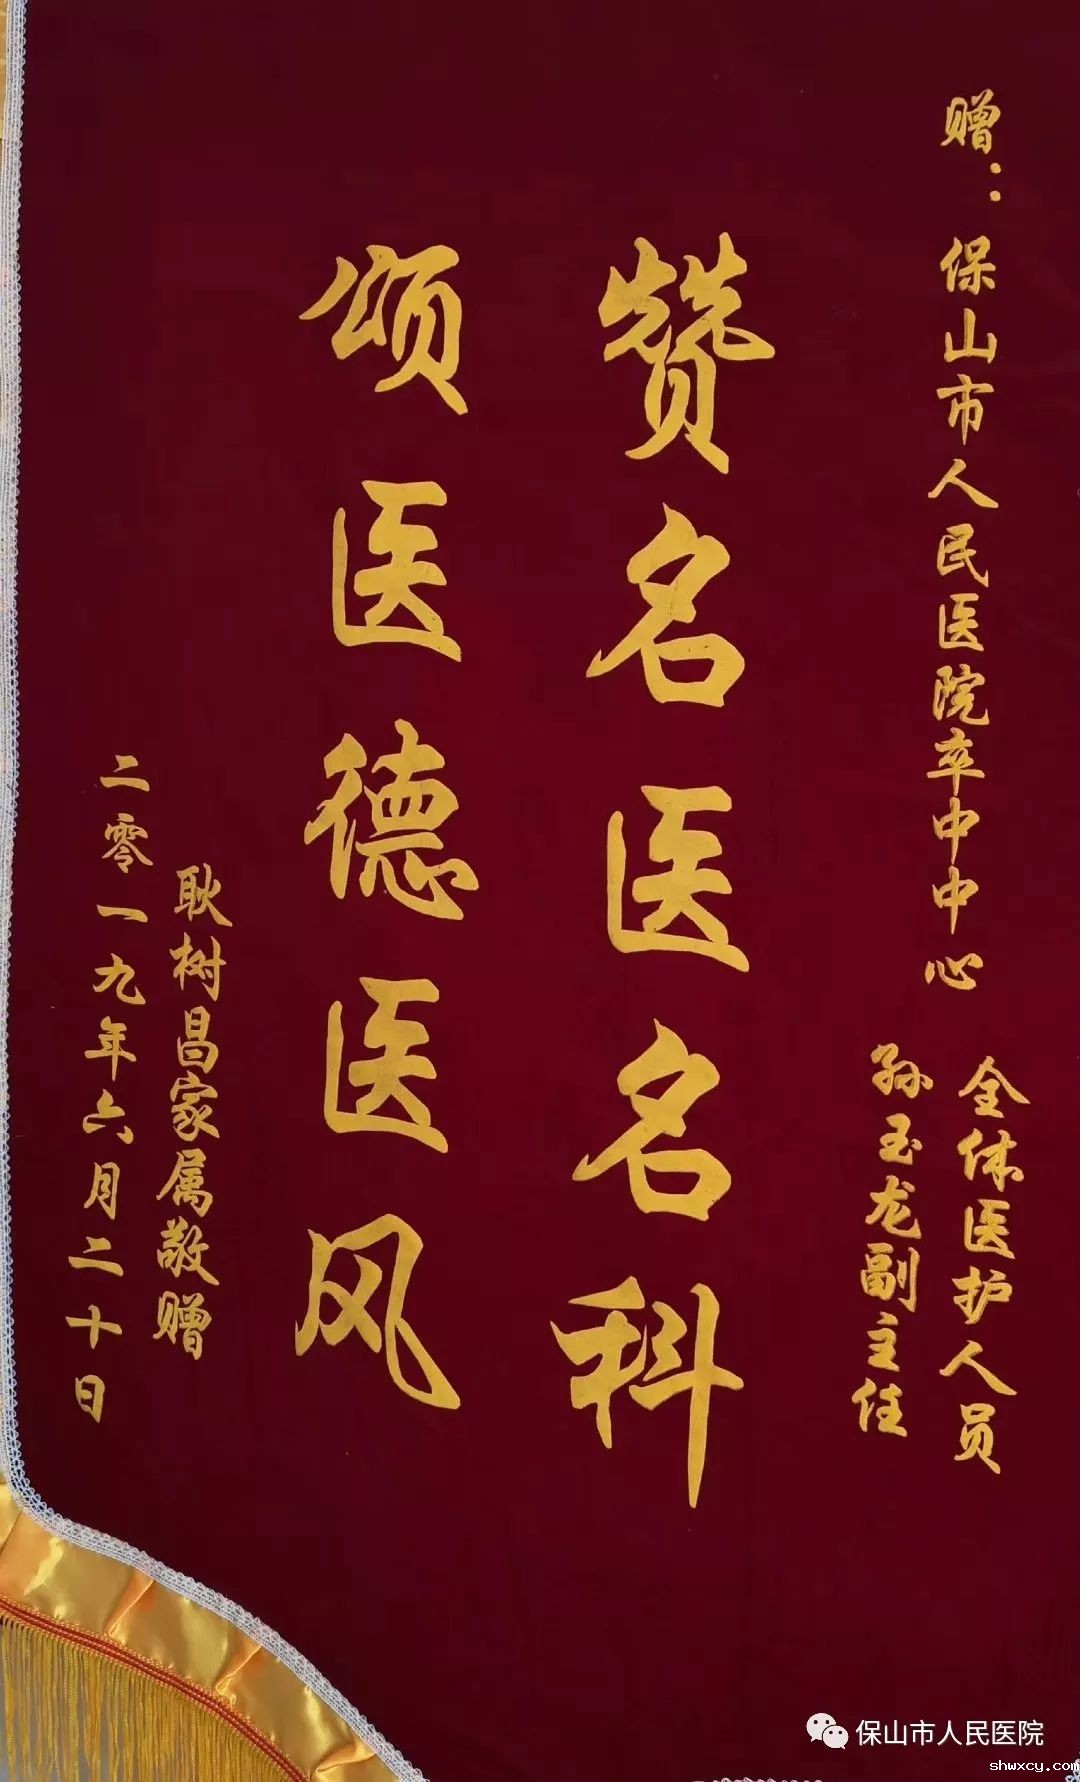 赠：保山市人民医院卒中中心
全体医护人员
孙玉龙副主任
赞名医名科
颂医德医风
耿树昌家属敬赠
二零一九年六月二十日
保山市人民医院
shwxcy.com